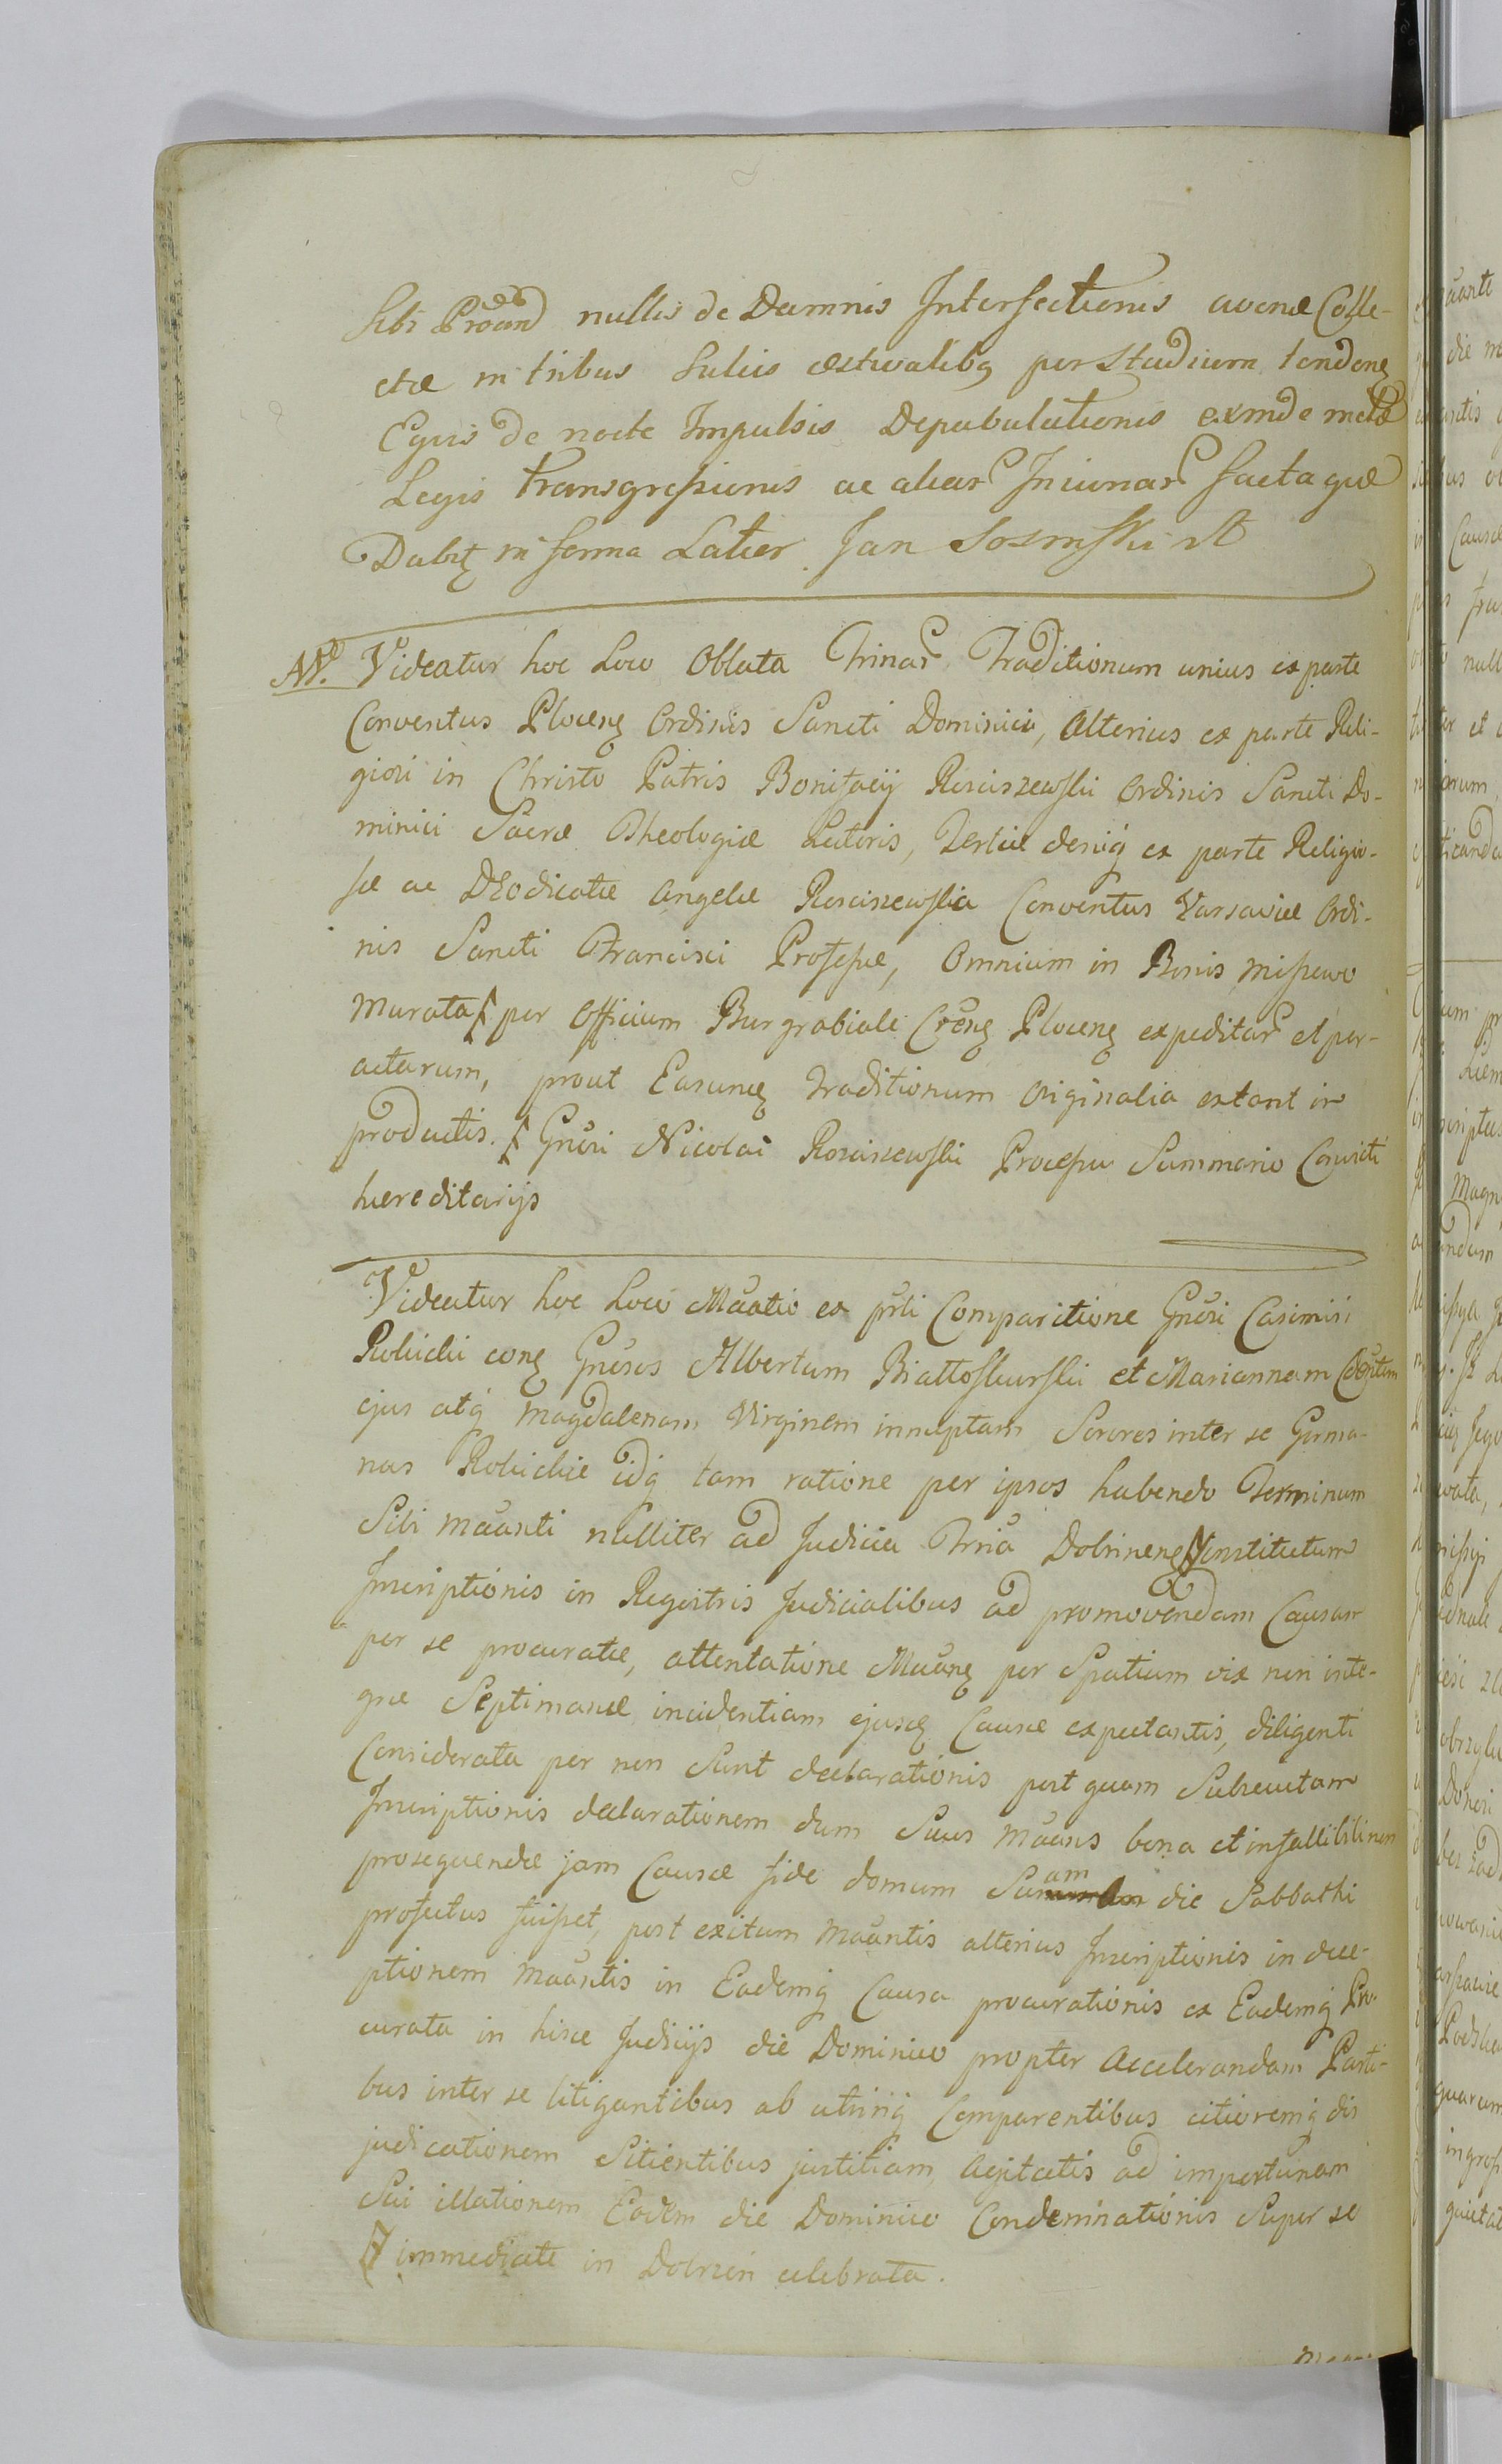 Sibi Proand nullis de Damnis Intersectionis avenæ Colle-
ctæ in tribus Sulcis æstivalibq per Stadium tendenę
Equis de nocte Impulsis Depabulationis exinde metæ
Legis transgressionis ac aliar Iniuriar factaque
Dabit in forma Latior Jan
Nᵒ. Videatur hoc Loco Oblata Trinar Traditionum unius ex parte
Conventus Plocenę Ordinis Sancti Dominici, Alterius ex parte Reli-
giosi in Christo Patris Bonifacij Rosciszewski Ordinis Sancti Do-
minici Sacræ Theologiæ Lectoris, Tertiæ deniq ex parte Religio-
sæ ac DEodicatæ Angelæ Rosciszewska Conventus Varsaviæ Ordi-
nis Sancti Francisci Professæ, Omnium in Bonis Missewo
Murata per Officium Burgrabiale Crenę Plocenę expeditar et per-
actarum, prout Earundę Traditionum Originalia extant in
productis. Gnosi Nicolai Rosciszewski Processu Summario Convicti
hæreditarijs
Videatur hoc Loco Mŭatio ex prli Comparitione Gnosi Casimiri
Rokicki conę Gnosos Albertum Białłoskurski et Mariannam
ejus atq Magdalenam Virginem innuptam Sorores inter se Germa-
nas Rokickie idq tam ratione per ipsos habendo Terminum
Sibi Mŭanti nulliter ad Judicia Trria Dobrinenę institutum
Inscriptionis in Regestris Judicialibus ad promovendam Causam
per se procuratæ, attentatione Mŭanę per Spatium vix non inte-
græ Septimanæ incidentiam ejusdę Causæ expectantis, diligenti
Considerata per non Sunt declarationis post quam Subsecutam
Inscriptionis declarationem dum Suus Mŭans bona et infallibili non
prosequendæ jam Causæ fide domum Suam die Sabbathi
profectus fuisset, post exitum Mŭantis alterius Inscriptionis in dece-
ptionem Mŭantis in Eademq Causa procurationis ex Eademq Pro-
curata in hisce Judicijs die Dominico propter Accelerandam Parti-
bus inter se litigantibus ab utrinq Comparentibus citioremq dis
judicationem Sitientibus justitiam Agitatis ad importunam
Sui illationem Eodem die Dominico Condemnationis Super se
immediate in Dobrzin celebrata.